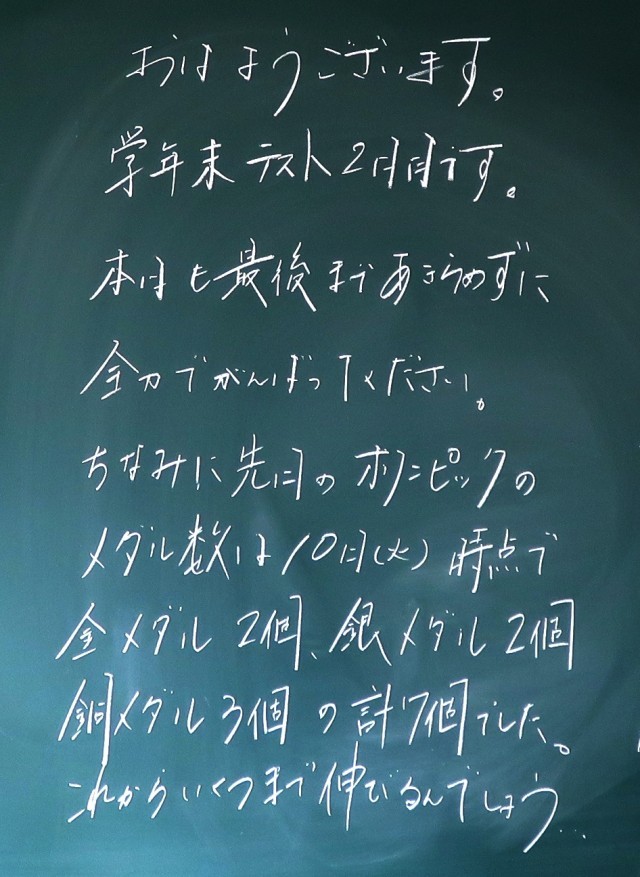 おはようございます。
学年末テスト2日目です。
本日も最後まであきらめずに
全力でがんばってください。
ちなみに先日のオリンピックの
メダル数は10日(火)時点で
金メダル2個、銀メダル2個
銅メダル3個の計7個でした。
これからいくつまで伸びるんでしょう…